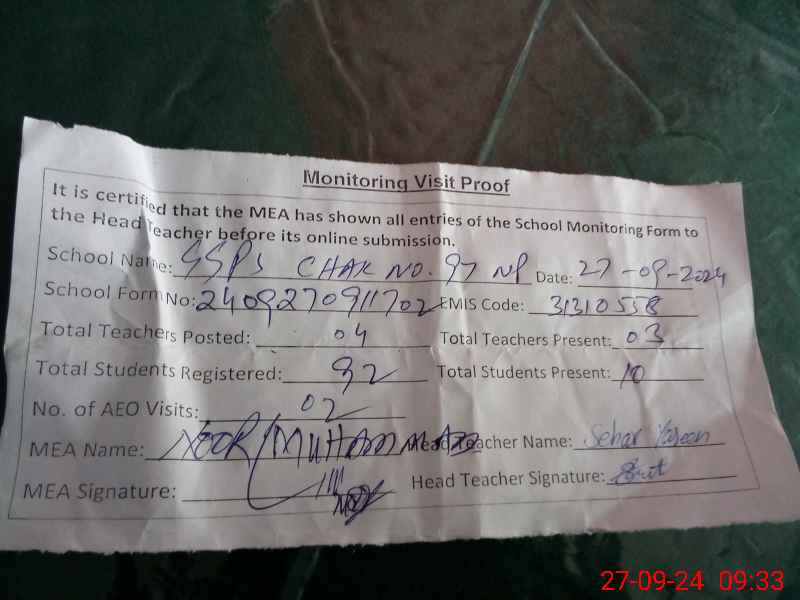 Monitoring Visit Proof
It is certified that the MEA has shown all entries of the School Monitoring Form to
the Head Teacher before its online submission.
School Name: GGPS CHAK NO. 97 NP Date: 27-09-2024
School Form No: 240927091702 EMIS Code: 31310558
Total Teachers Posted: 04 Total Teachers Present: 03
Total Students Registered: 92 Total Students Present: 10
No. of AEO Visits: 02
MEA Name: NOOR MUHAMMAD Head Teacher Name: Sehar Yaseen
MEA Signature: Head Teacher Signature:
27-09-24 09:33